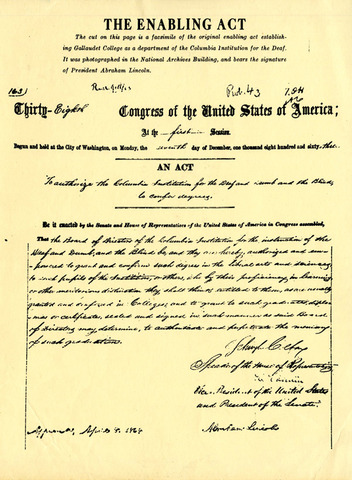 THE ENABLING ACT
The cut on this page is a facsimile of the original enabling act establish-
ing Gallaudet College as a department of the Columbia Institution for the Deaf.
It was photographed in the National Archives Building, and bears the signature
of President Abraham Lincoln.
Pub. 43
Thirty-Eighth Congress of the United States of America;
At the first Session,
Begun and held at the City of Washington, on Monday, the seventh day of December, one thousand eight hundred and sixty-three
AN ACT
To authorize the Columbia Institution for the Deaf and Dumb and the Blind
to confer degrees.
Be it enacted by the Senate and House of Representatives of the United States of America in Congress assembled,
That the Board of Directors of the Columbia Institution for the instruction of the
Deaf and Dumb, and the Blind, be, and they are hereby, authorized and em-
powered to grant and confirm such degrees in the liberal arts and sciences,
to such pupils of the Institution, or others, who by their proficiency in learning
or other meritorious distinction they shall think entitled to them, as are usually
granted and conferred in Colleges; and to grant to such graduates diplo-
mas or certificates, sealed and signed in such manner as said Board
of Directors may determine, to authenticate and perpetuate the memory
of such graduations.
Speaker of the House of Representatives
Vice-President of the United States
and President of the Senate.
Approved, April 8, 1864
Abraham Lincoln